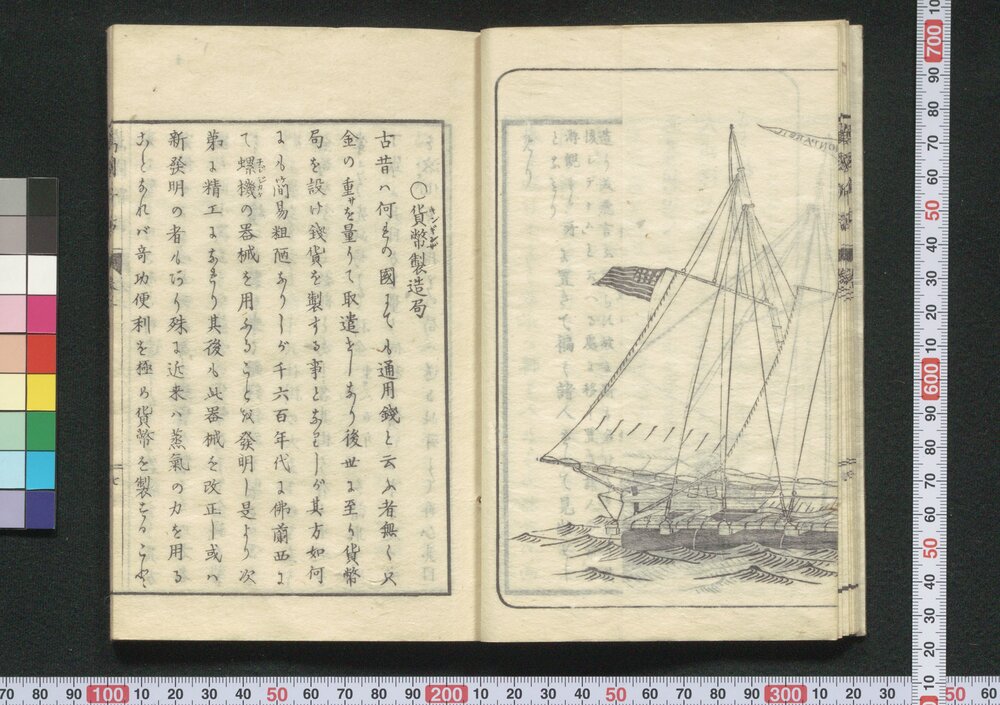 ○貨幣製造局
古昔ハ何れの國にても通用錢と云ふ者無く只
金の重サを量りて取遣をしたり後世に至り貨幣
局を設け錢貨を製する事となりしが其方如何
にも簡易粗陋なりしが千六百年代に佛蘭西に
て螺機の器械を用ふることを發明し是より次
第に精工になれり其後も此器械を改正し或ハ
新發明の者もあり殊に近来ハ蒸氣の力を用る
ことなれバ奇功便利を極め貨幣を製すること